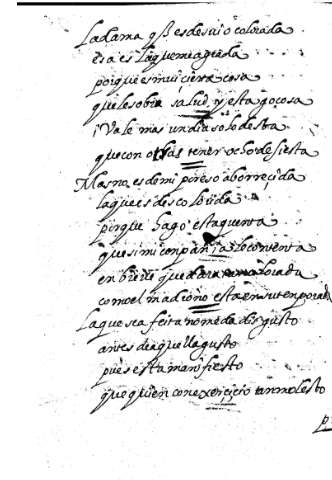 La dama q̃ es de suio colorada
esa es la que me agrada
porque es mui cierta cosa
que le sobra salud, y esta goçosa
i Vale mas un dia solo desta
que con otras tener ocho de fiesta
Mas no es de mi por eso aborreçida
la que es descolorida
porque hago esta quenta
que si mi conpañia le contenta
en breue quedara
como el madroño esta en su temporada
La que es feita no me da disgusto
antes de aquella gusto
pues esta manifiesto
que quien con exerçiçio tan molesto
p